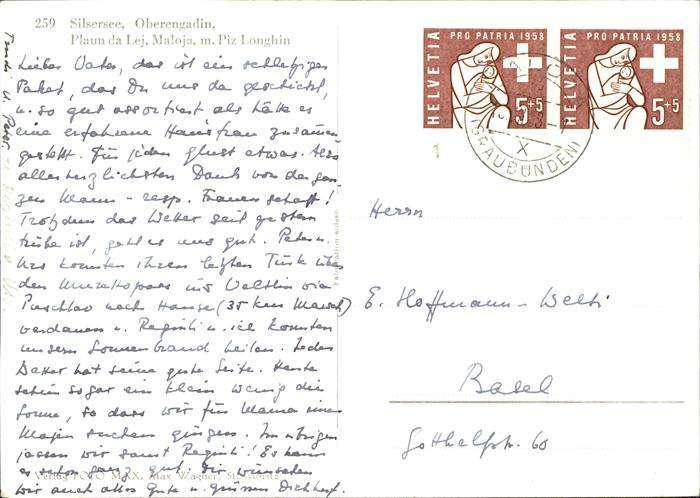 259 Silsersee, Oberengadin,
Plaun da Lej, Maloja, m. Piz Longhin
Lieber Vater, das ist ein
Paket, das Du uns da geschickt,
u. so gut assortiert als hätte es
eine erfahrene Hausfrau zusammen
gestellt. Für jeden etwas. Also
allerherzlichsten Dank von der gan-
zen Mann- resp. Frauenschaft!
Trotzdem das Wetter seit gestern
trübe ist, geht es uns gut. Peter u.
Urs konnten ihren letzten Türk über
den Murettopass ins Veltlin via
Puschlav nach Hause (35 km Marsch)
verdauen u. Regineli u. ich konnten
unsern Sonnenbrand heilen. Jedes
Wetter hat seine gute Seite. Heute
schien sogar ein klein wenig die
Sonne, so dass wir für Mama einen
suchen gingen. Im übrigen
jassen wir samt Regineli! Es kann
es schon ganz gut. Wir wünschen
Dir auch alles Gute u. grüssen Dich herzl.
u. Peter
Verlag FOTO MAX, Max Wagner, St. Moritz
HELVETIA PRO PATRIA 1958 5+5
HELVETIA PRO PATRIA 1958 5+5
(GRAUBÜNDEN)
X
Herrn
E. Hoffmann-Welti
Basel
Gotthelfstr. 60